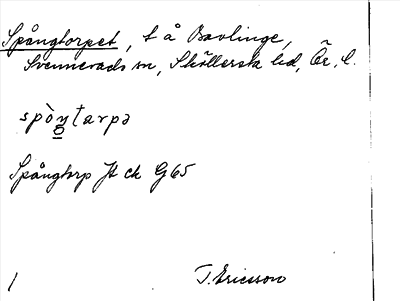 Spångtorpet, t å Bavlinge,
Svennevads sn, Sköllersta hd, Ör. l.
spòŋtarpə
Spångtorp Jt ck G65
1 T. Ericsson